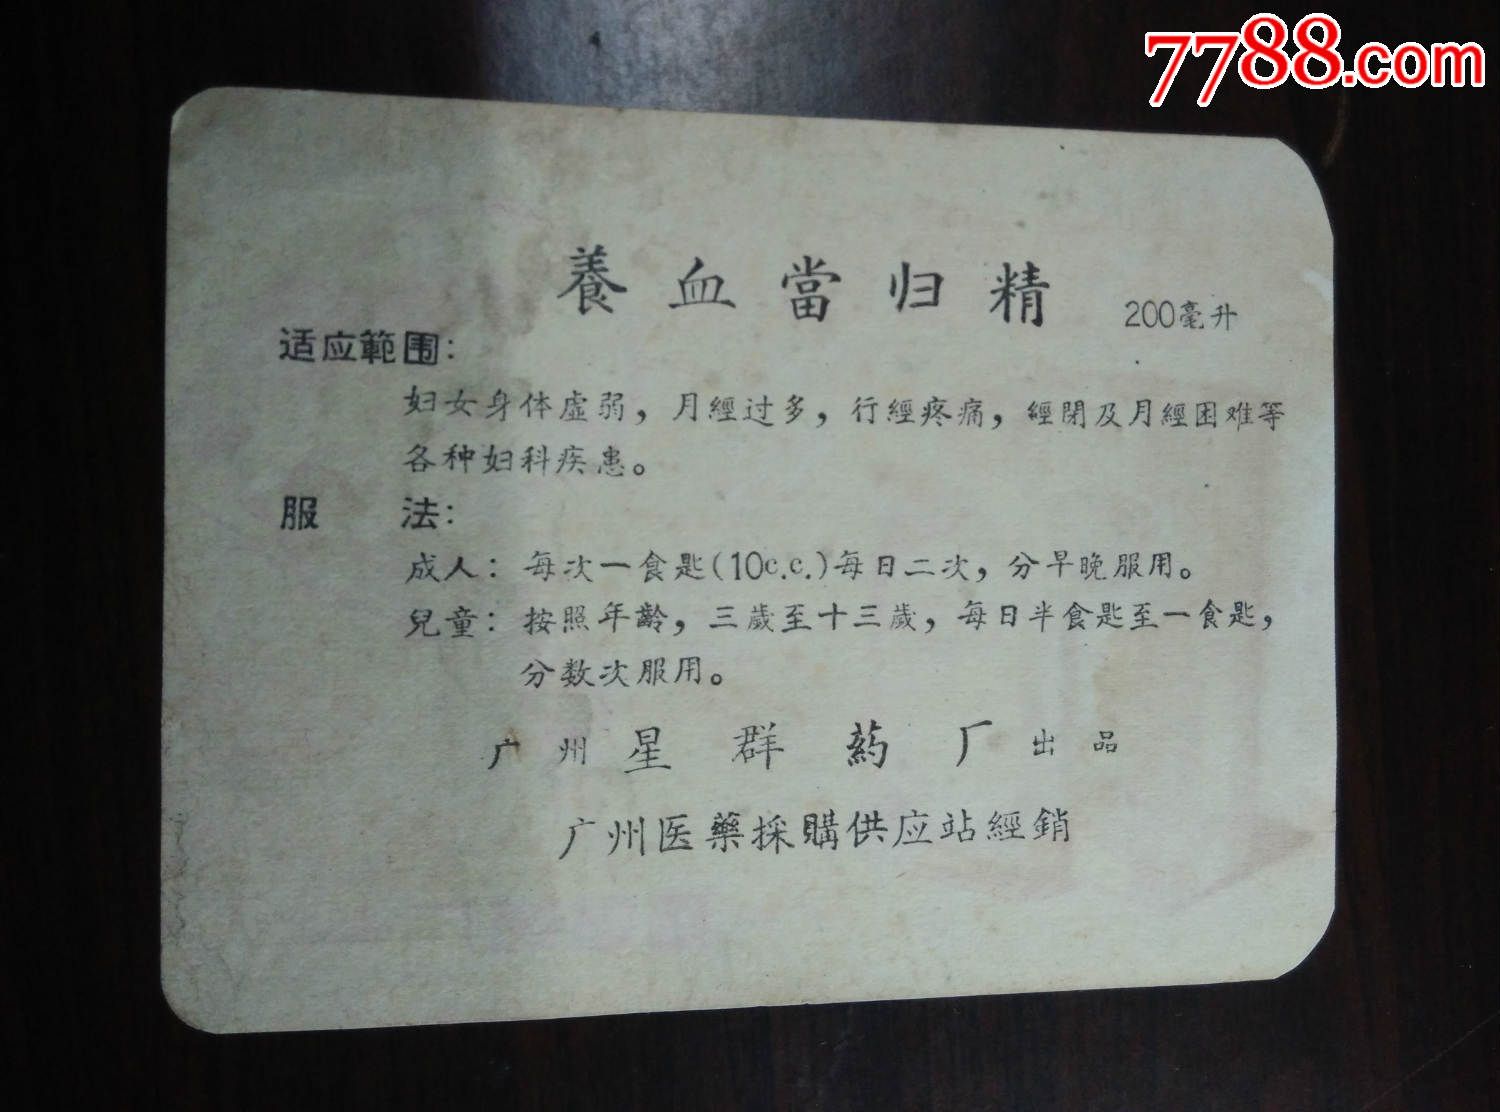 7788.com
養血當归精 200毫升
适应範围：
妇女身体虚弱，月經过多，行經疼痛，經閉及月經困难等
各种妇科疾患。
服 法：
成人：每次一食匙(10c.c.)每日二次，分早晚服用。
兒童：按照年齡，三歲至十三歲，每日半食匙至一食匙，
分数次服用。
广州星群葯厂出品
广州医藥採購供应站經銷